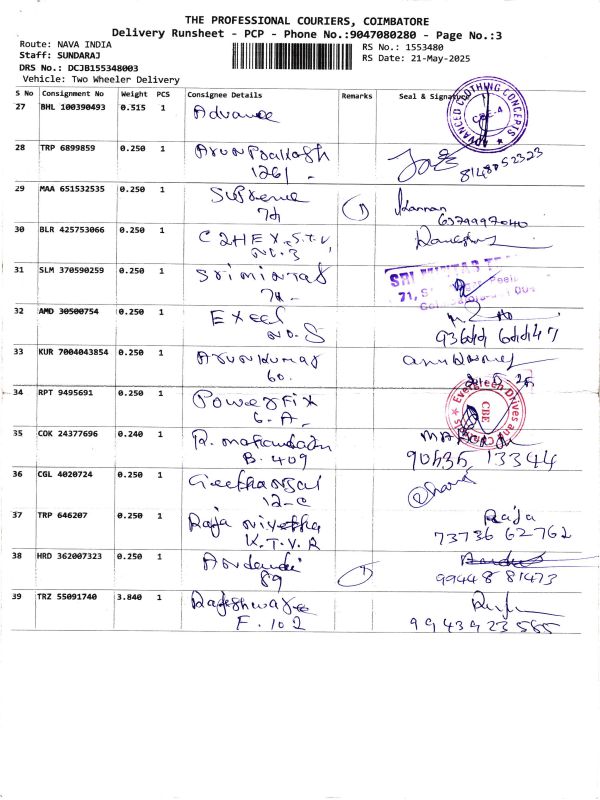 THE PROFESSIONAL COURIERS, COIMBATORE
Delivery Runsheet - PCP - Phone No.:9047080280 - Page No.:3
Route: NAVA INDIA
RS No.: 1553480
Staff: SUNDARAJ
RS Date: 21-May-2025
DRS No.: DCJB155348003
Vehicle: Two Wheeler Delivery
S No Consignment No Weight PCS Consignee Details Remarks Seal & Signature
27 BHL 100390493 0.515 1 Advance
ADVANCED CLOTHING CONCEPTS CBE-4
28 TRP 6899859 0.250 1 Arun Prakash
1261 - 8148052323
29 MAA 651532535 0.250 1 Supreme 1 Kannan
74 6379997040
30 BLR 425753066 0.250 1 C2HEX. S.T.V.
NO. 3
31 SLM 370590259 0.250 1 Sri mintas SRI MINTAS
74 - 71, S
32 AMD 30500754 0.250 1 Excel
NO. 5
33 KUR 7004043854 0.250 1 Arun kumar
60. 21-5-25
34 RPT 9495691 0.250 1 Power fix Evergreen Drives CBE
6. A.
35 COK 24377696 0.240 1 R.
B. 409 90535 13344
36 CGL 4020724 0.250 1 Geethanjal
12-C
37 TRP 646207 0.250 1 Raja nivetha Raja
K.T.V.R 73736 62762
38 HRD 362007323 0.250 1
89 1 99448 81473
39 TRZ 55091740 3.840 1 Rajeshwar
F. 102 9943923585